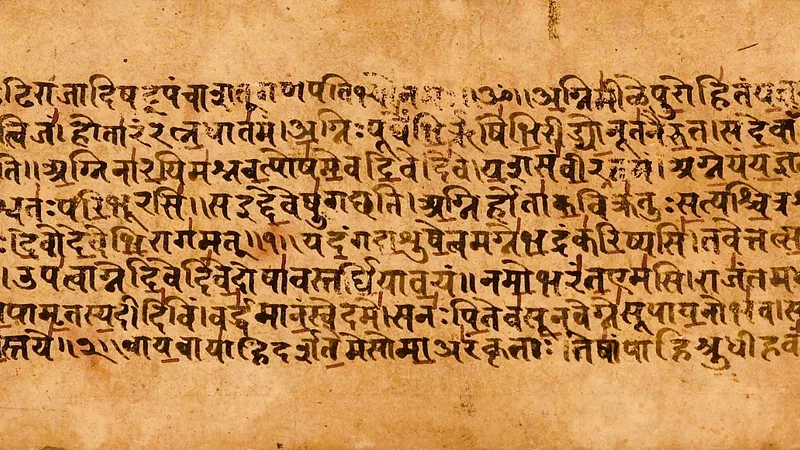 ॥ॐ॥अग्निमीळेपुरोहितंय
त्विजं।होतारंरत्नधातमं।अग्निःपूर्वेभिर्ऋषिभिरीड्योनूतनैरुत।सदेवाँ
ति॥अग्निनारयिमश्नवत्पोषमेवदिवेदिवे।यशसंवीरवत्तमं।अग्नेयंयज्ञम
श्वतःपरिभूरसि॥सइद्देवेषुगछति।अग्निर्होताकविक्रतुःसत्यश्चित्रश्र
देवोदेवेभिरागमत्॥१॥यदंगदाशुषेत्वमग्नेभद्रंकरिष्यसि।तवेत्तत्स
।उपत्वाग्नेदिवेदिवेदोषावस्तर्धियावयं॥नमोभरंतएमसि।राजंतम
पामृतस्यदीदिविं।वर्द्धमानंस्वेदमे।सनःपितेवसूनवेग्नेसूपायनोभव।स
स्तये॥२॥वायवायाहिदर्शतमेसोमाअरंकृताः।तेषांपाहिश्रुधीहवं